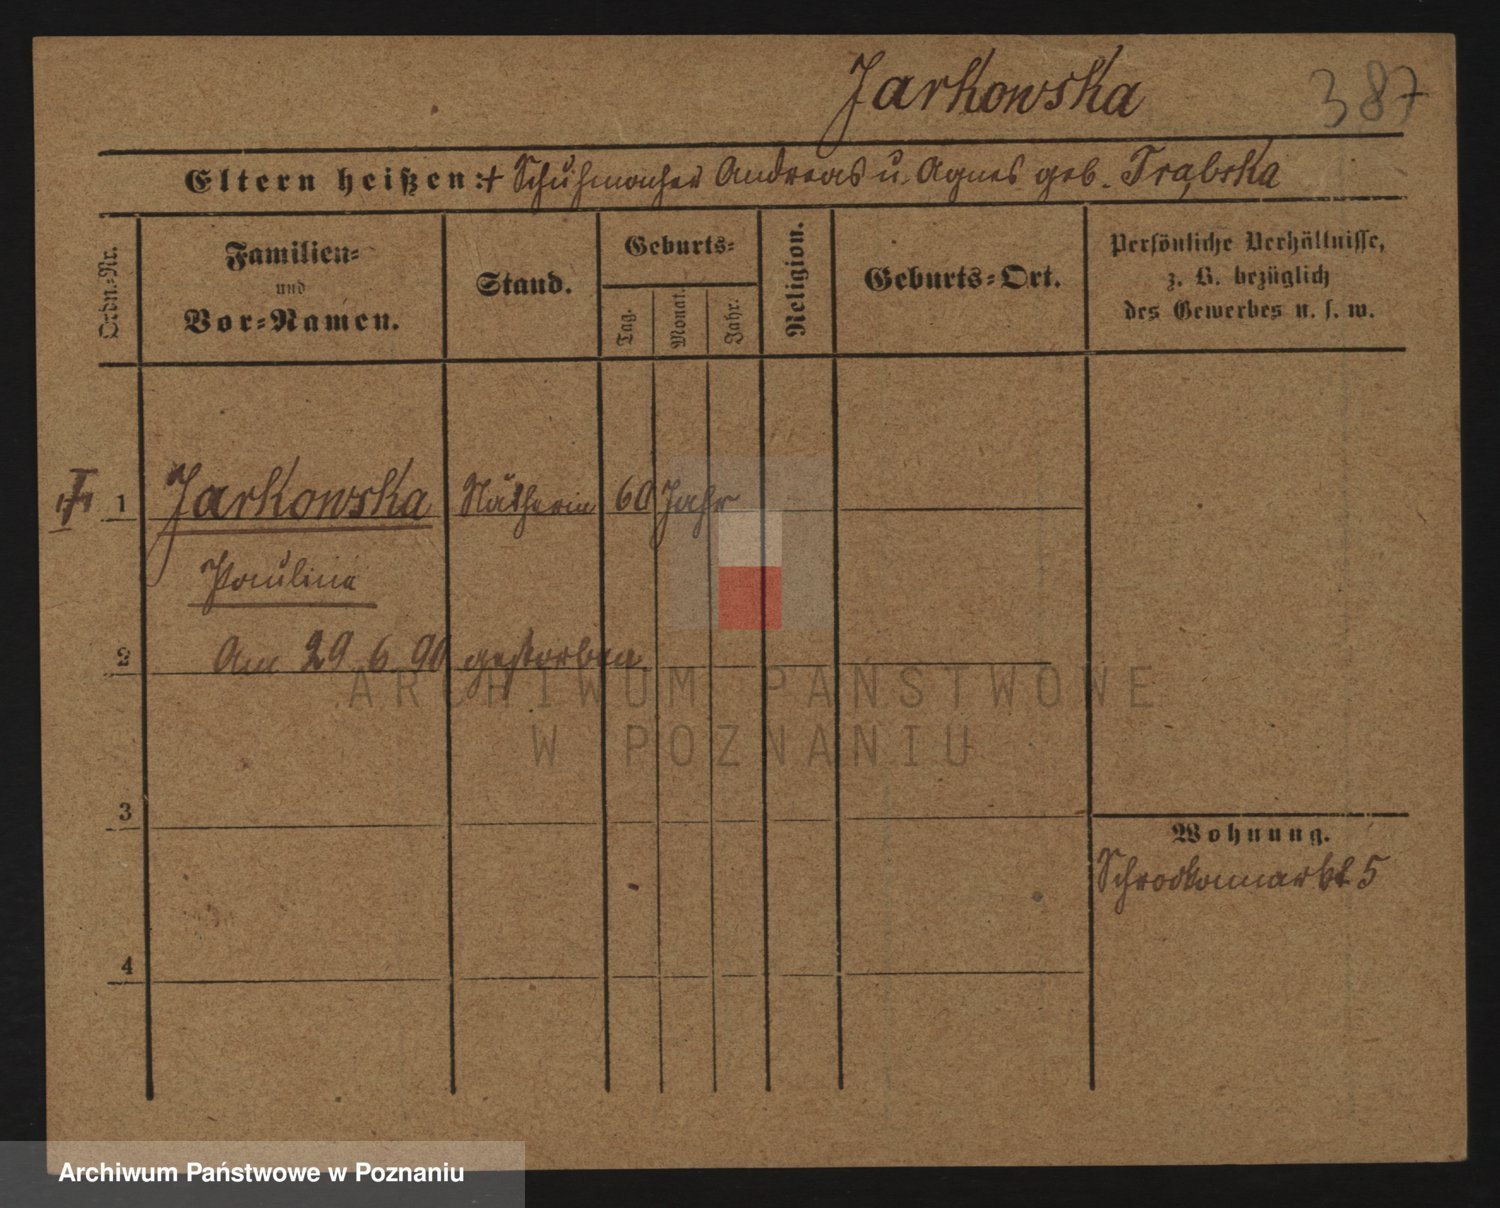 Jarkowska
387
Eltern heißen: + Schuhmacher Andreas u. Agnes geb. Trąbska
Ordn.-Nr.
Familien-
und
Vor-Namen.
Stand.
Geburts-
Tag.
Monat.
Jahr.
Religion.
Geburts-Ort.
Persönliche Verhältnisse,
z. B. bezüglich
des Gewerbes u. s. w.
1 Jarkowska Nätherin 60 Jahr
Paulina
2 Am 29 6 90 gestorben
ARCHIWUM PAŃSTWOWE
W POZNANIU
3
Wohnung.
Schrodkamarkt 5
4
Archiwum Państwowe w Poznaniu